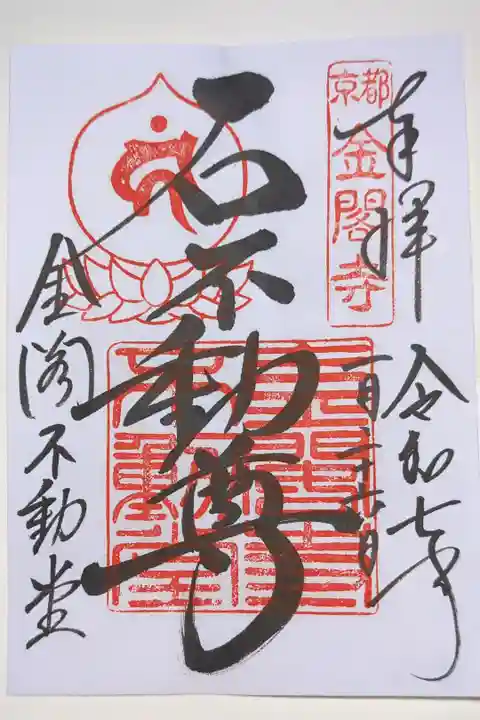 奉拝
令和七年
一月二十六日
京都
金閣寺
石不動尊
金閣不動堂